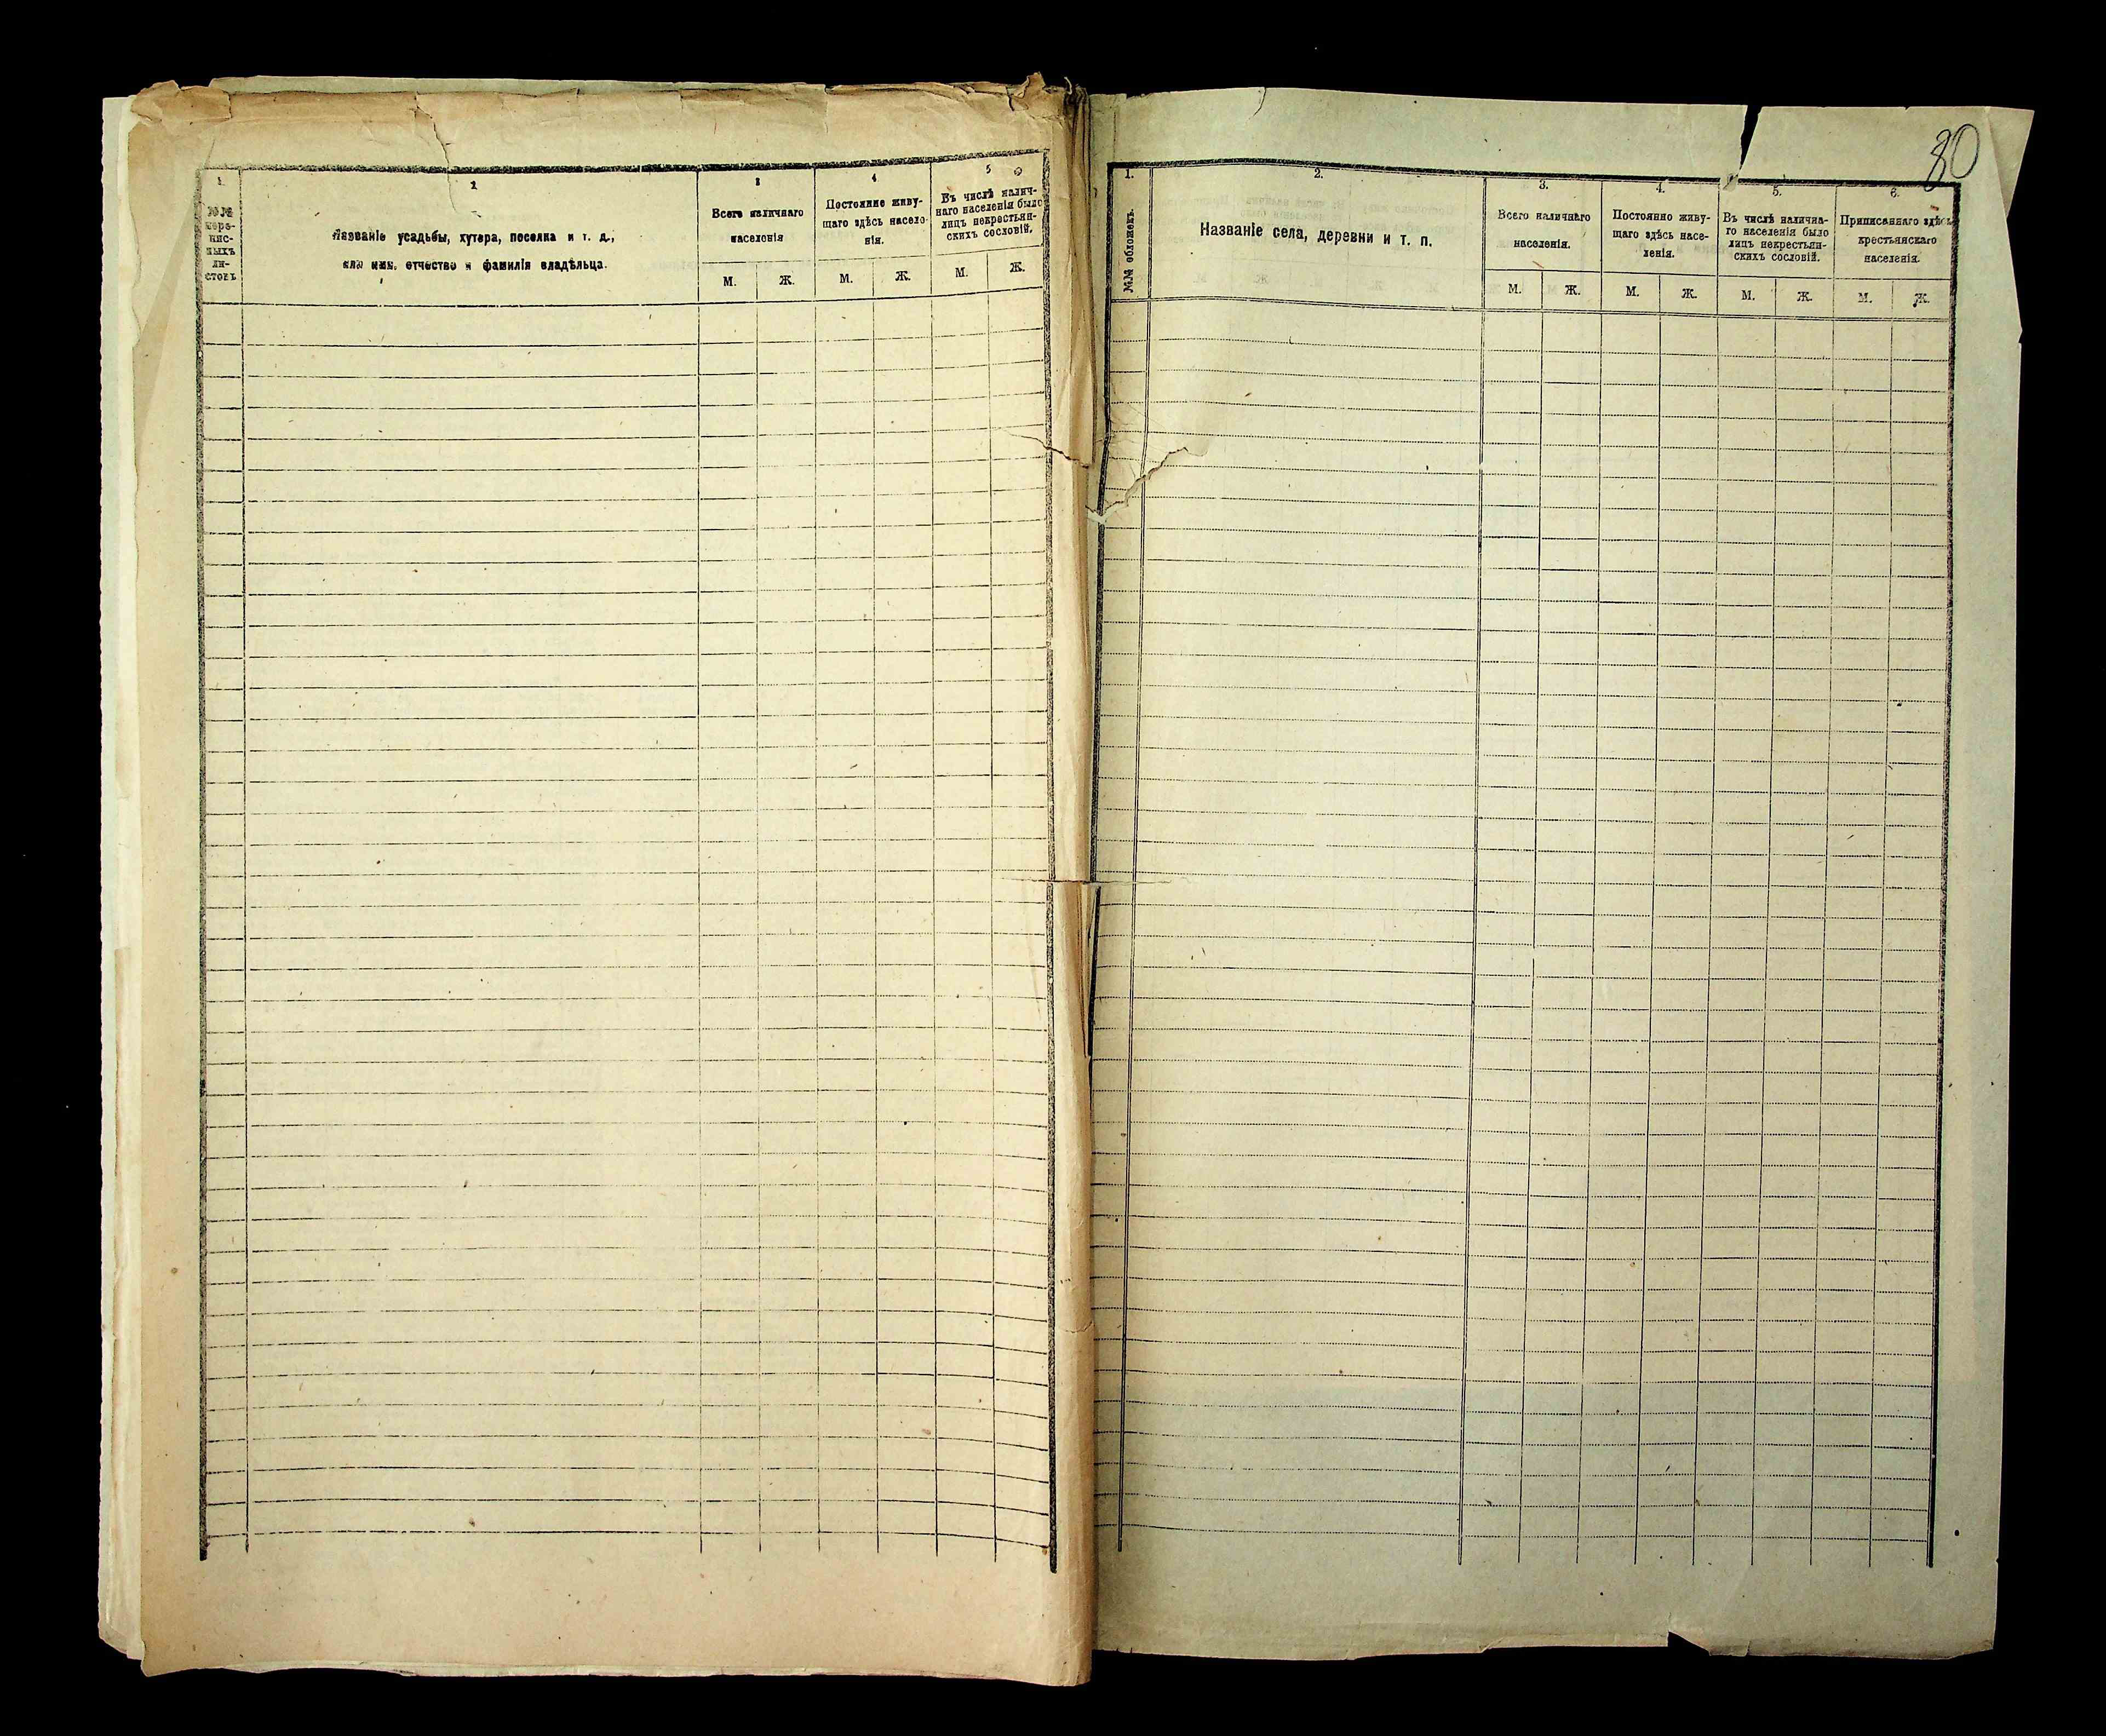 80
1. 2 3 4 5
№№
пере-
пис-
ныхъ
ли-
стовъ
Названіе усадьбы, хутора, поселка и т. д.,
или имя, отчество и фамилія владѣльца.
Всего наличнаго
населенія
Постоянно живу-
щаго здѣсь населе-
нія.
Въ числѣ налич-
наго населенія было
лицъ некрестьян-
скихъ сословій.
М. Ж. М. Ж. М. Ж.
1. 2. 3. 4. 5. 6.
№№ обложекъ.
Названіе села, деревни и т. п.
Всего наличнаго
населенія.
Постоянно живу-
щаго здѣсь насе-
ленія.
Въ числѣ налична-
го населенія было
лицъ некрестьян-
скихъ сословій.
Приписаннаго здѣсь
крестьянскаго
населенія.
М. Ж. М. Ж. М. Ж. М. Ж.